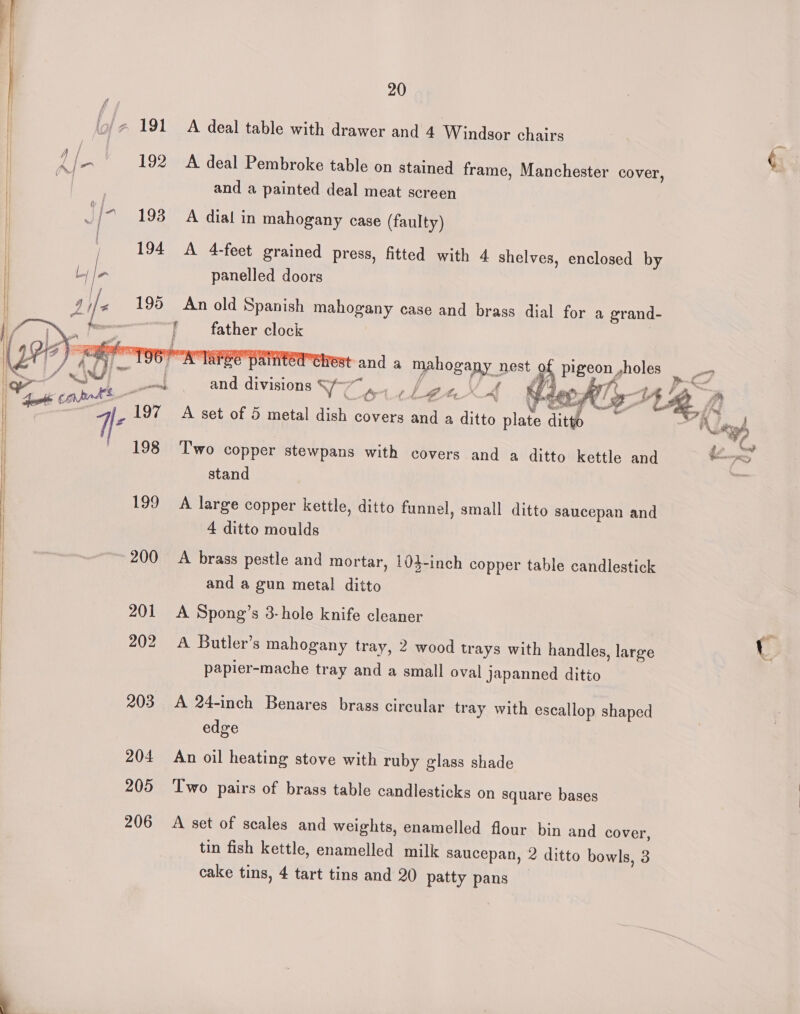 20
191 A deal table with drawer and 4 Windsor chairs
192 A deal Pembroke table on stained frame, Manchester cover,
and a painted deal meat screen
193 A dial in mahogany case (faulty)
194 A 4-feet grained press, fitted with 4 shelves, enclosed by
panelled doors
195 An old Spanish mahogany case and brass dial for a grand-
father clock
196 A large painted chest and a mahogany nest of pigeon holes
and divisions
197 A set of 5 metal dish covers and a ditto plate ditto
198 Two copper stewpans with covers and a ditto kettle and
stand
199 A large copper kettle, ditto funnel, small ditto saucepan and
4 ditto moulds
200 A brass pestle and mortar, 10½-inch copper table candlestick
and a gun metal ditto
201 A Spong's 3-hole knife cleaner
202 A Butler's mahogany tray, 2 wood trays with handles, large
papier-mache tray and a small oval japanned ditto
203 A 24-inch Benares brass circular tray with escallop shaped
edge
204 An oil heating stove with ruby glass shade
205 Two pairs of brass table candlesticks on square bases
206 A set of scales and weights, enamelled flour bin and cover,
tin fish kettle, enamelled milk saucepan, 2 ditto bowls, 3
cake tins, 4 tart tins and 20 patty pans